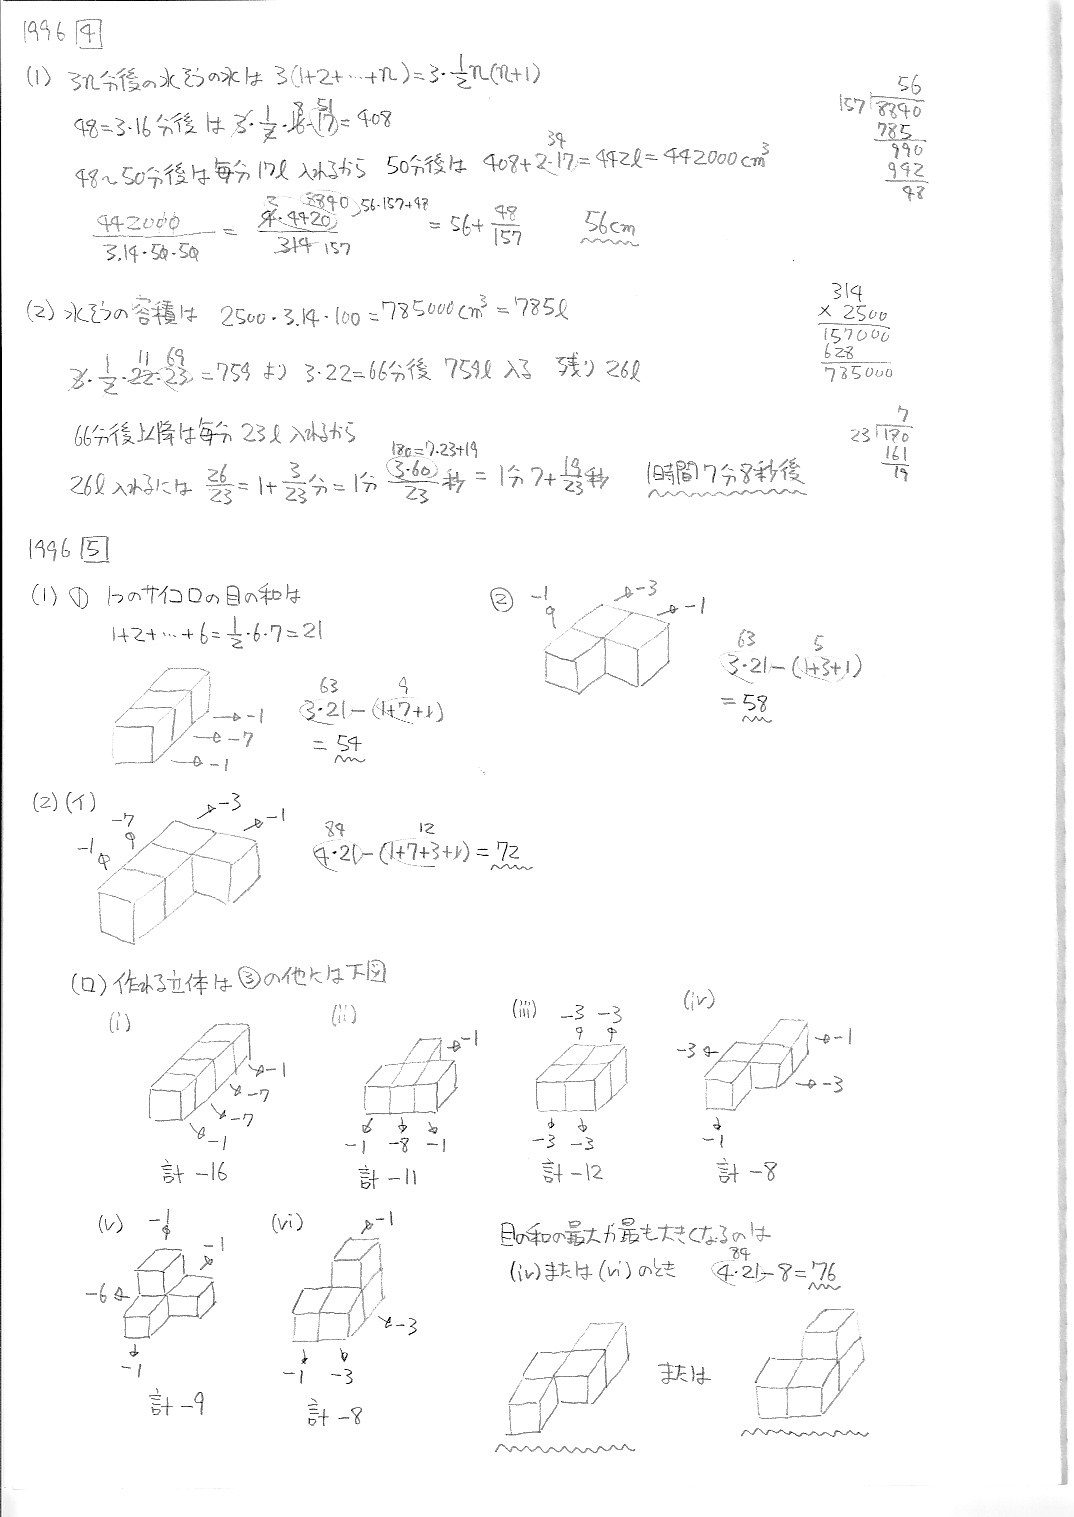 1996 4
(1) 3n分後の水そうの水は 3(1+2+…+n)=3・1/2n(n+1)
48=3・16分後は 3・1/2・16・17=408
8 51
48〜50分後は毎分17l入れるから 50分後は 408+2・17=442l=442000cm³
34
442000/3.14・50・50 = 4・4420/314 = 56+48/157 56cm
2 8840 56・157+48
157
56
157 8840
785
990
942
48
(2) 水そうの容積は 2500・3.14・100=785000cm³=785l
3・1/2・22・23=759より 3・22=66分後 759l入る 残り26l
11 69
66分後以降は毎分23l入れるから
26l入れるには 26/23=1+3/23分=1分 3・60/23秒=1分7+19/23秒 1時間7分8秒後
180=7・23+19
314
× 2500
157000
628
785000
7
23 180
161
19
1996 5
(1) ① 1つのサイコロの目の和は
1+2+…+6=1/2・6・7=21
-1
-7
-1
63 9
3・21-(1+7+1)
=54
② -1 -3 -1
63 5
3・21-(1+3+1)
=58
(2)(イ)
-1 -7 -3 -1
84 12
4・21-(1+7+3+1)=72
(ロ) 作れる立体は③の他には下図
(i)
-1
-7
-7
-1
計-16
(ii)
-1
-1 -8 -1
計-11
(iii) -3 -3
-3 -3
計-12
(iv)
-3 -1
-3
-1
計-8
(v) -1
-1
-6
-1
計-9
(vi) -1
-3
-1 -3
計-8
目の和の最大が最も大きくなるのは
(iv)または(vi)のとき 4・21-8=76
84
または